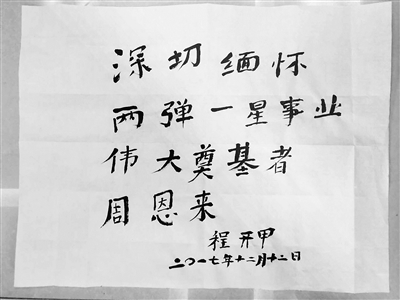 深切缅怀
两弹一星事业
伟大奠基者
周恩来
程开甲
二〇一七年十二月十二日